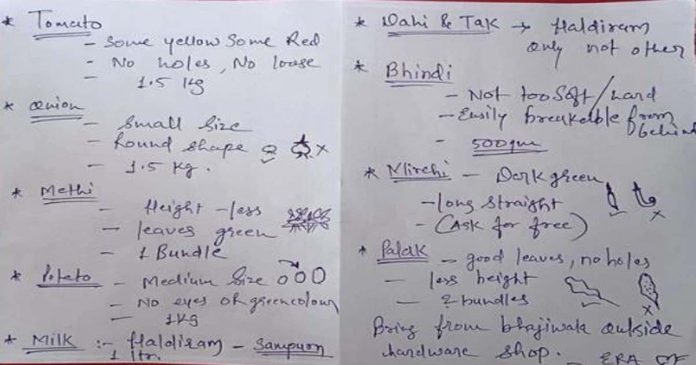 * Tomato
- Some yellow Some Red
- No holes, No loose
- 1.5 Kg
* Onion
- Small Size
- Round shape
- 1.5 Kg.
* Methi
- Height - less
- leaves green
- 1 Bundle
* Poteto - Medium Size
- No eyes or green colour
- 1 Kg
* Milk :- Haldiram - Sampurn
1 ltr.
* Dahi & Tak → Haldiram
only not other
* Bhindi
- Not too Soft/hard
- Easily breakelble from
behind
- 500gm
* Mirchi - Dark green
- long straight
- (Ask for free)
* Palak - good leaves, no holes
- less height
- 2 bundles
Bring from bhajiwala outside
hardware shop. - ERA OF